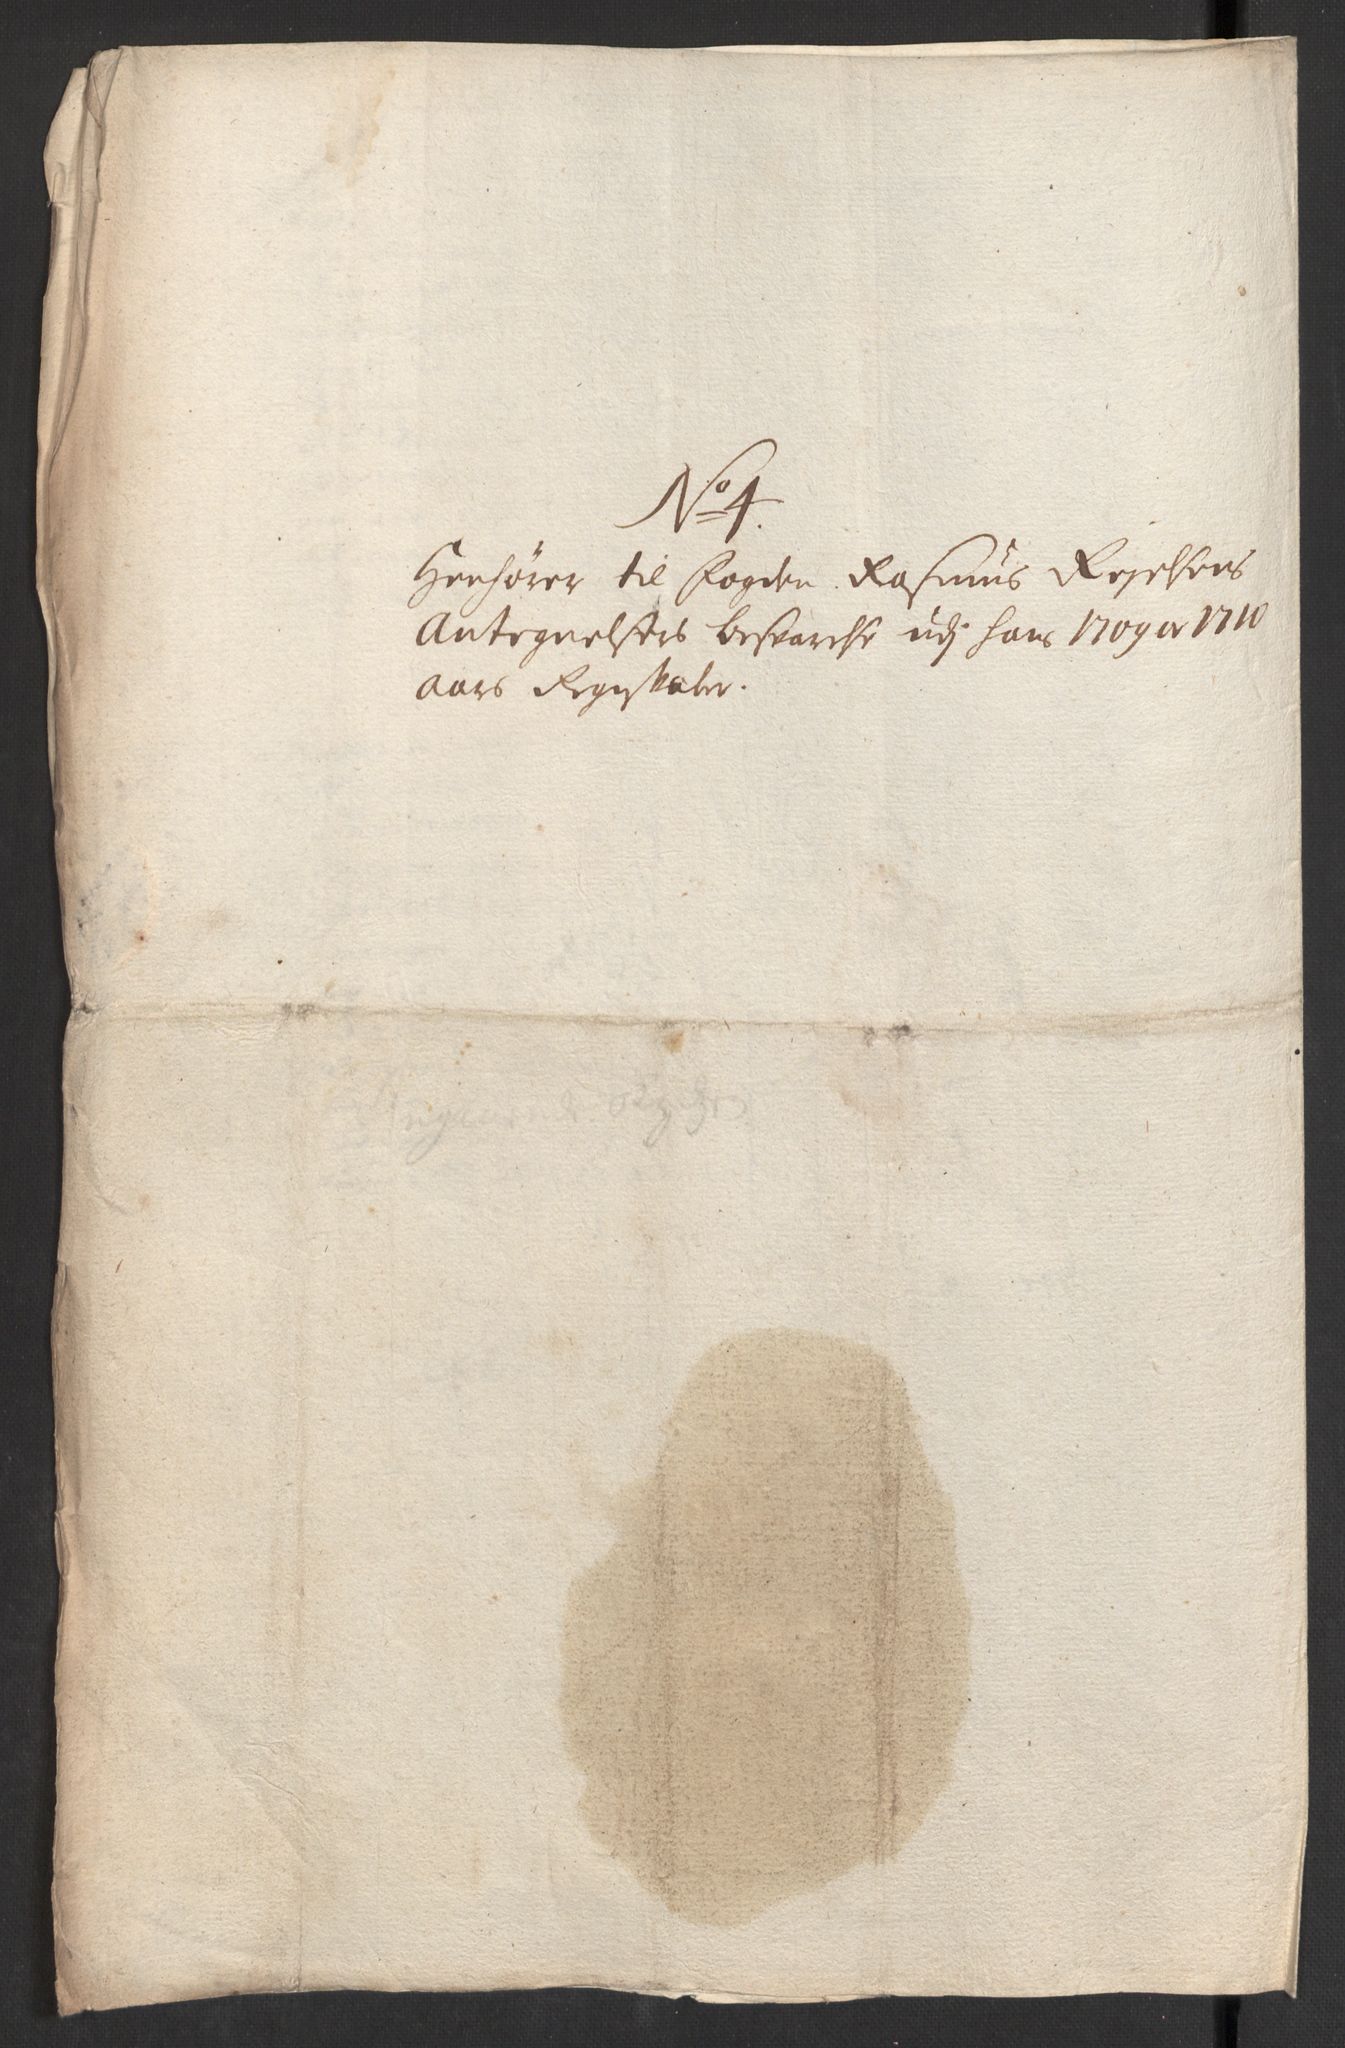 No 4.
Henhörer til Fogden Rasmus
Antegnelsers besvarelse udj hans 1709 1710
aars Regnskaber.